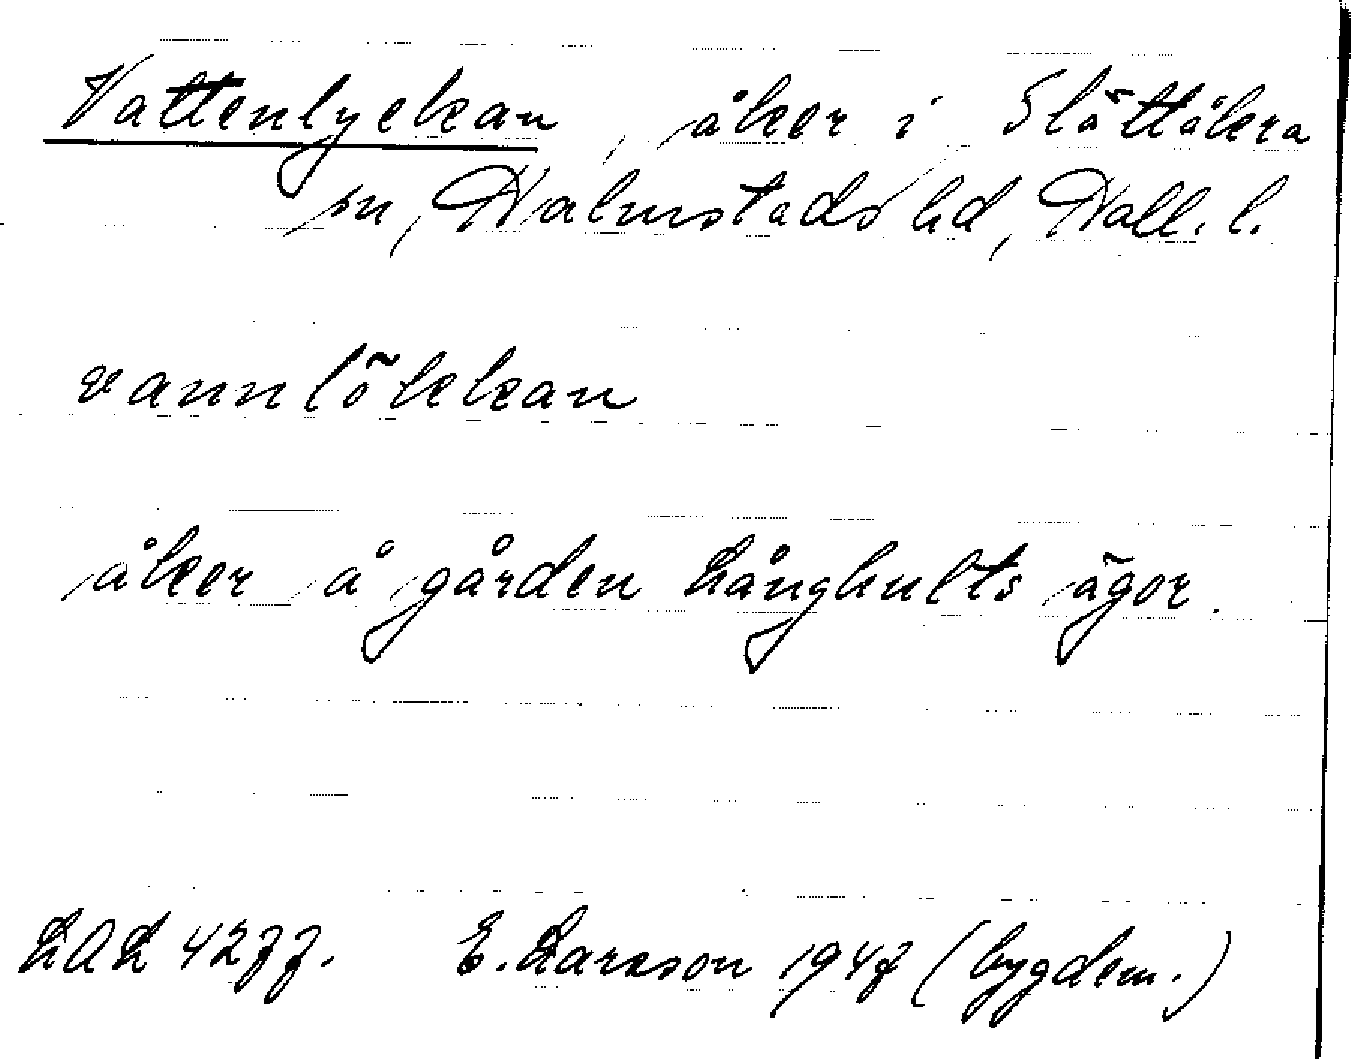 Vattenlyckan, åker i Slättåkra
sn, Halmstads hd, Hall. l.
vannlökkan
åker å gården Långhults ägor.
LAL 4277. E. Larsson 1947 (bygdem.)